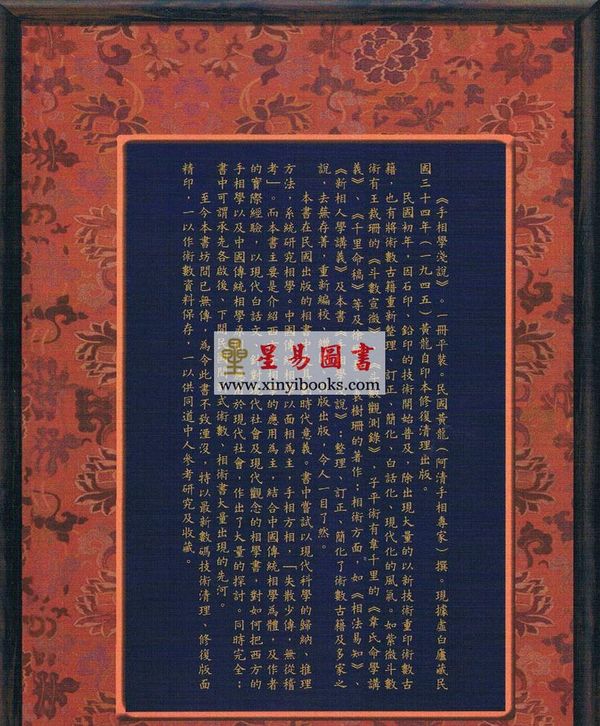 《手相學淺說》。一冊平裝。民國黃龍（阿清手相專家）撰。現據虛白廬藏民
國三十四年（一九四五）黃龍自印本修復清理出版。
民國初年，因石印、鉛印的技術開始普及，除出現大量的以新技術重印術數古
籍，也有將術數古籍重新整理、訂正、簡化、白話化、現代化的風氣。如紫微斗數
術有王裁珊的《斗數宣微》、《斗數觀測錄》、子平術有韋千里的《韋氏命學講
義》、《千里命稿》等及徐袁樹珊的著作；相術方面，如《相法易知》、
《新相人學講義》及本書《手相學淺說》；整理、訂正、簡化了術數古籍及多家之
說，去蕪存菁，重新編校版出版，令人一目了然。
本書在民國出版的相書中具時代意義。書中嘗試以現代科學的歸納、推理
方法，系統研究相學。中國傳統相以面相為主，手相方相，「失散少傳，無從稽
考」。而本書主要是介紹西相的應用為主，結合中國傳統相學為體，及作者
的實際經驗，以現代白話文對現代社會及現代觀念的相學書，對如何把西方的
手相學以及中國傳統相學於現代社會，作出了大量的探討。同時完全；
書中可謂承先各啟後、下開民式術數、相術書大量出現的先河。
至今本書坊間已無傳，為令此書不致湮沒，特以最新數碼技術清理、修復版面
精印，一以作術數資料保存，一以供同道中人參考研究及收藏。
星易圖書
www.xinyibooks.com